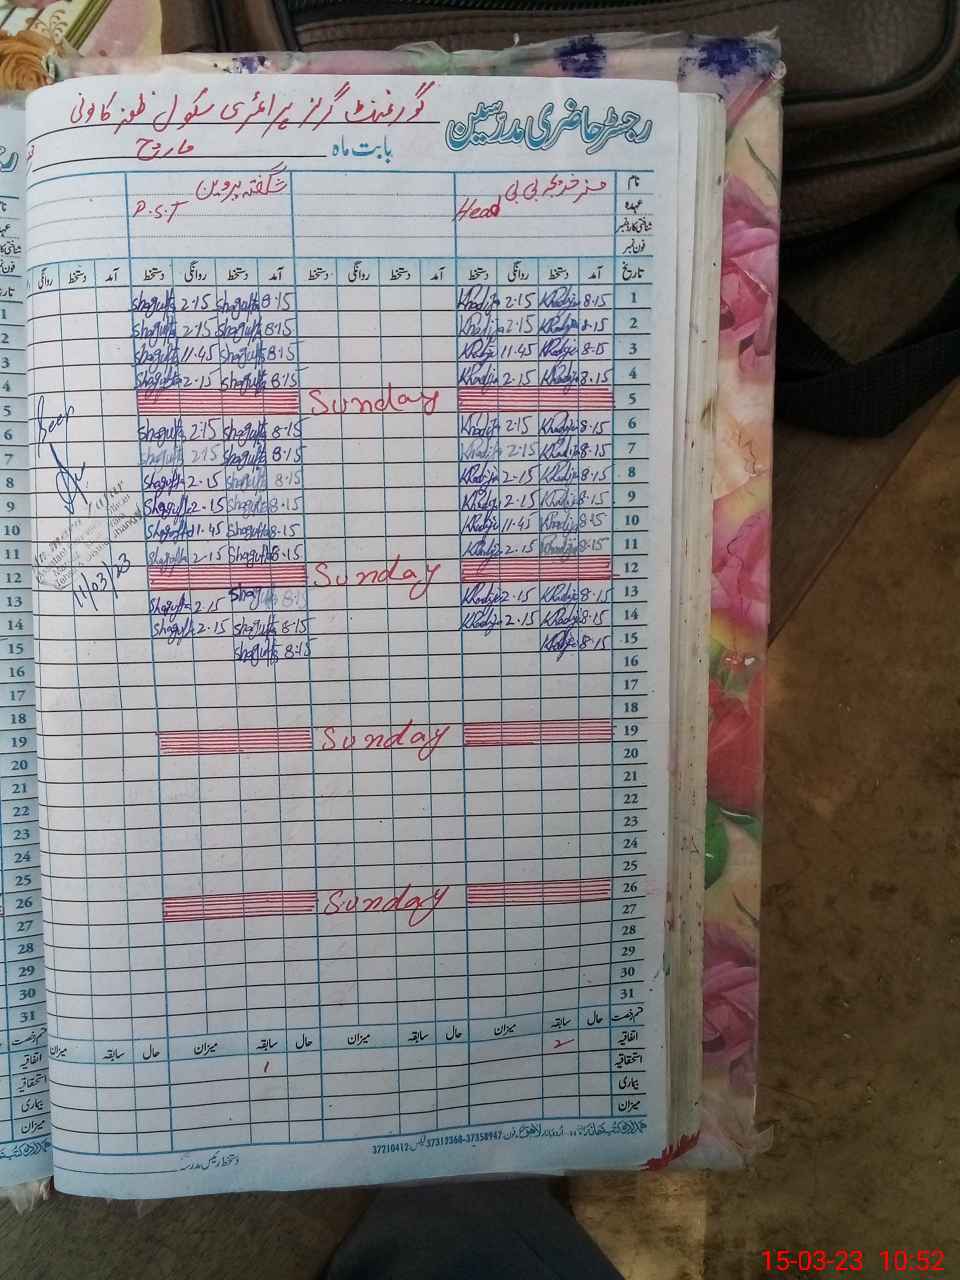 رجسٹر حاضری مدرسین گورنمنٹ گرلز پرائمری سکول
بابت ماہ مارچ
نام مسز خدیجہ بی بی شگفتہ پروین
عہدہ Head P.S.T
شناختی کارڈ نمبر
فون نمبر
تاریخ آمد دستخط روانگی دستخط آمد دستخط روانگی دستخط آمد دستخط روانگی دستخط آمد دستخط روانگی
1 8.15 Khadija 2.15 Khadija 8.15 Shagufta 2.15 Shagufta
2 8.15 Khadija 2.15 Khadija 8.15 Shagufta 2.15 Shagufta
3 8.15 Khadija 11.45 Khadija 8.15 Shagufta 11.45 Shagufta
4 8.15 Khadija 2.15 Khadija 8.15 Shagufta 2.15 Shagufta
5 Sunday
6 8.15 Khadija 2.15 Khadija 8.15 Shagufta 2.15 Shagufta
7 8.15 Khadija 2.15 Khadija 8.15 Shagufta 2.15 Shagufta
8 8.15 Khadija 2.15 Khadija 8.15 Shagufta 2.15 Shagufta
9 8.15 Khadija 2.15 Khadija 8.15 Shagufta 2.15 Shagufta
10 8.15 Khadija 11.45 Khadija 8.15 Shagufta 11.45 Shagufta
11 8.15 Khadija 2.15 Khadija 8.15 Shagufta 2.15 Shagufta
12 Sunday
13 8.15 Khadija 2.15 Khadija 8.15 Shagufta 2.15 Shagufta
14 8.15 Khadija 2.15 Khadija 8.15 Shagufta 2.15 Shagufta
15 8.15 Khadija 8.15 Shagufta
16
17
18
19 Sunday
20
21
22
23
24
25
26 Sunday
27
28
29
30
31
قسم رخصت حال سابقہ میزان حال سابقہ میزان حال سابقہ میزان حال سابقہ میزان
اتفاقیہ 2 1
استحقاقیہ
بیماری
میزان
فون:37358947-37312368 فیکس:37210412
دستخط رئیس مدرسہ
Seen
11/03/23
1
2
3
4
5
6
7
8
9
10
11
12
13
14
15
16
17
18
19
20
21
22
23
24
25
26
27
28
29
30
31
قسم رخصت
اتفاقیہ
استحقاقیہ
بیماری
میزان
15-03-23 10:52